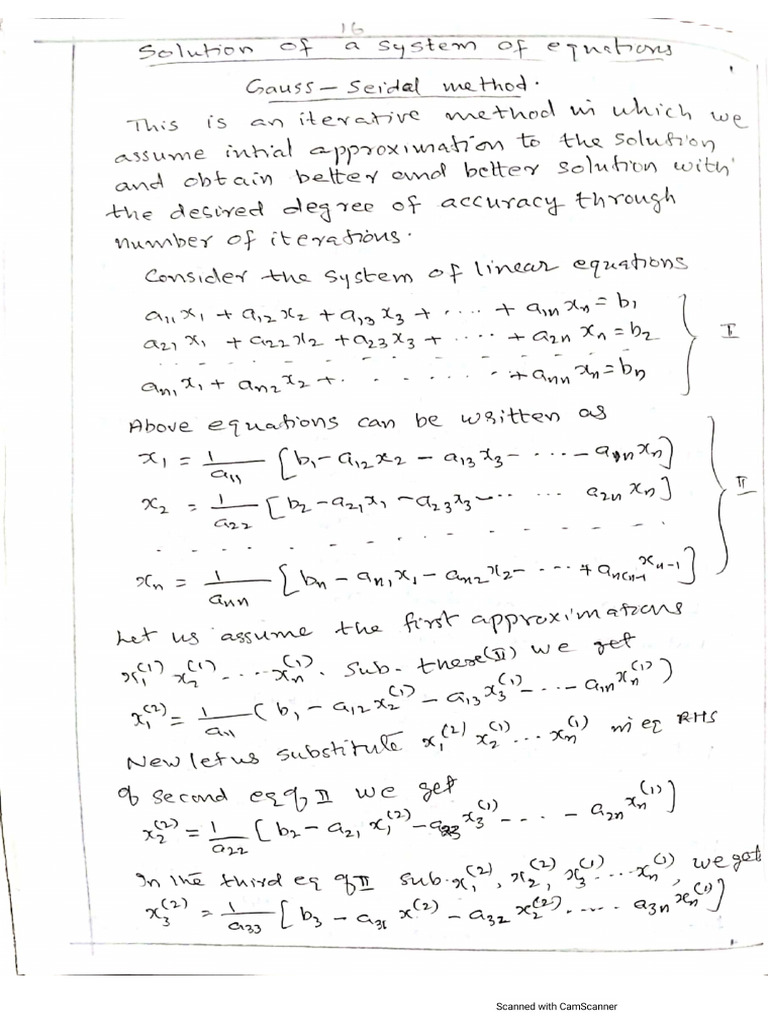 16
Solution of a system of equations
Gauss – Seidal method.
This is an iterative method in which we
assume intial approximation to the solution
and obtain better and better solution with
the desired degree of accuracy through
number of iterations.
Consider the system of linear equations
a₁₁x₁ + a₁₂x₂ + a₁₃x₃ + ..... + a₁ₙxₙ = b₁
a₂₁x₁ + a₂₂x₂ + a₂₃x₃ + ..... + a₂ₙxₙ = b₂ } I
. . . . . . . . . .
aₙ₁x₁ + aₙ₂x₂ + . . . . . . . + aₙₙxₙ = bₙ
Above equations can be written as
x₁ = 1/a₁₁ [b₁ - a₁₂x₂ - a₁₃x₃ - ..... - a₁ₙxₙ]
x₂ = 1/a₂₂ [b₂ - a₂₁x₁ - a₂₃x₃ - .. ... a₂ₙxₙ] } II
. . . . . . . . . .
xₙ = 1/aₙₙ [bₙ - aₙ₁x₁ - aₙ₂x₂ - ... + aₙ₍ₙ₋₁ xₙ₋₁]
Let us assume the first approximations
x₁⁽¹⁾ x₂⁽¹⁾ ..... xₙ⁽¹⁾. sub. these (II) we get
x₁⁽²⁾ = 1/a₁₁ (b₁ - a₁₂x₂⁽¹⁾ - a₁₃x₃⁽¹⁾ - ... - a₁ₙxₙ⁽¹⁾)
New let us substitute x₁⁽²⁾ x₂⁽¹⁾ ... xₙ⁽¹⁾ in eq RHS
of second eq of II we get
x₂⁽²⁾ = 1/a₂₂ [b₂ - a₂₁x₁⁽²⁾ - a₂₃x₃⁽¹⁾ - ... . - a₂ₙxₙ⁽¹⁾]
In the third eq of II sub. x₁⁽²⁾, x₂⁽²⁾, x₃⁽¹⁾ .... xₙ⁽¹⁾, we get
x₃⁽²⁾ = 1/a₃₃ [b₃ - a₃₁ x⁽²⁾ - a₃₂ x₂⁽²⁾ ..... a₃ₙxₙ⁽¹⁾]
Scanned with CamScanner